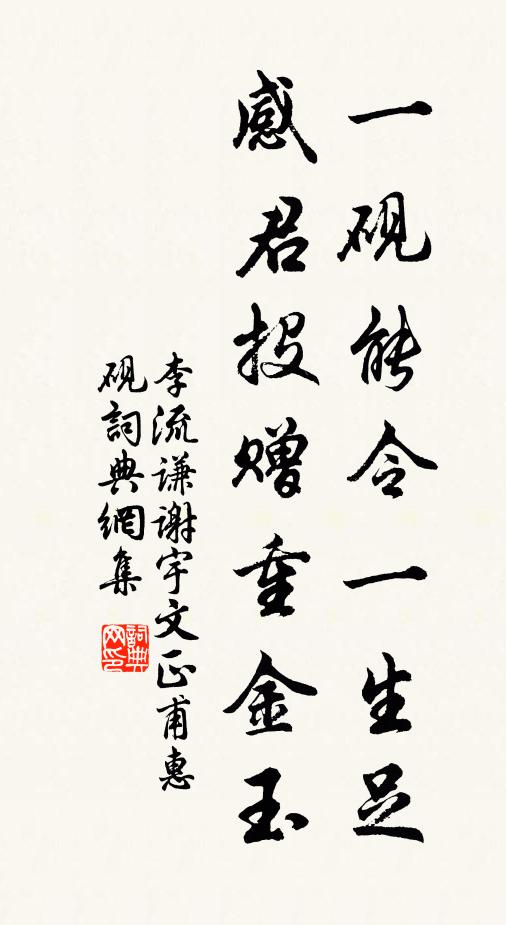 一砚能令一生足
感君投赠重金玉
李流谦谢宇文正甫惠
砚詞典網集
詞典网印